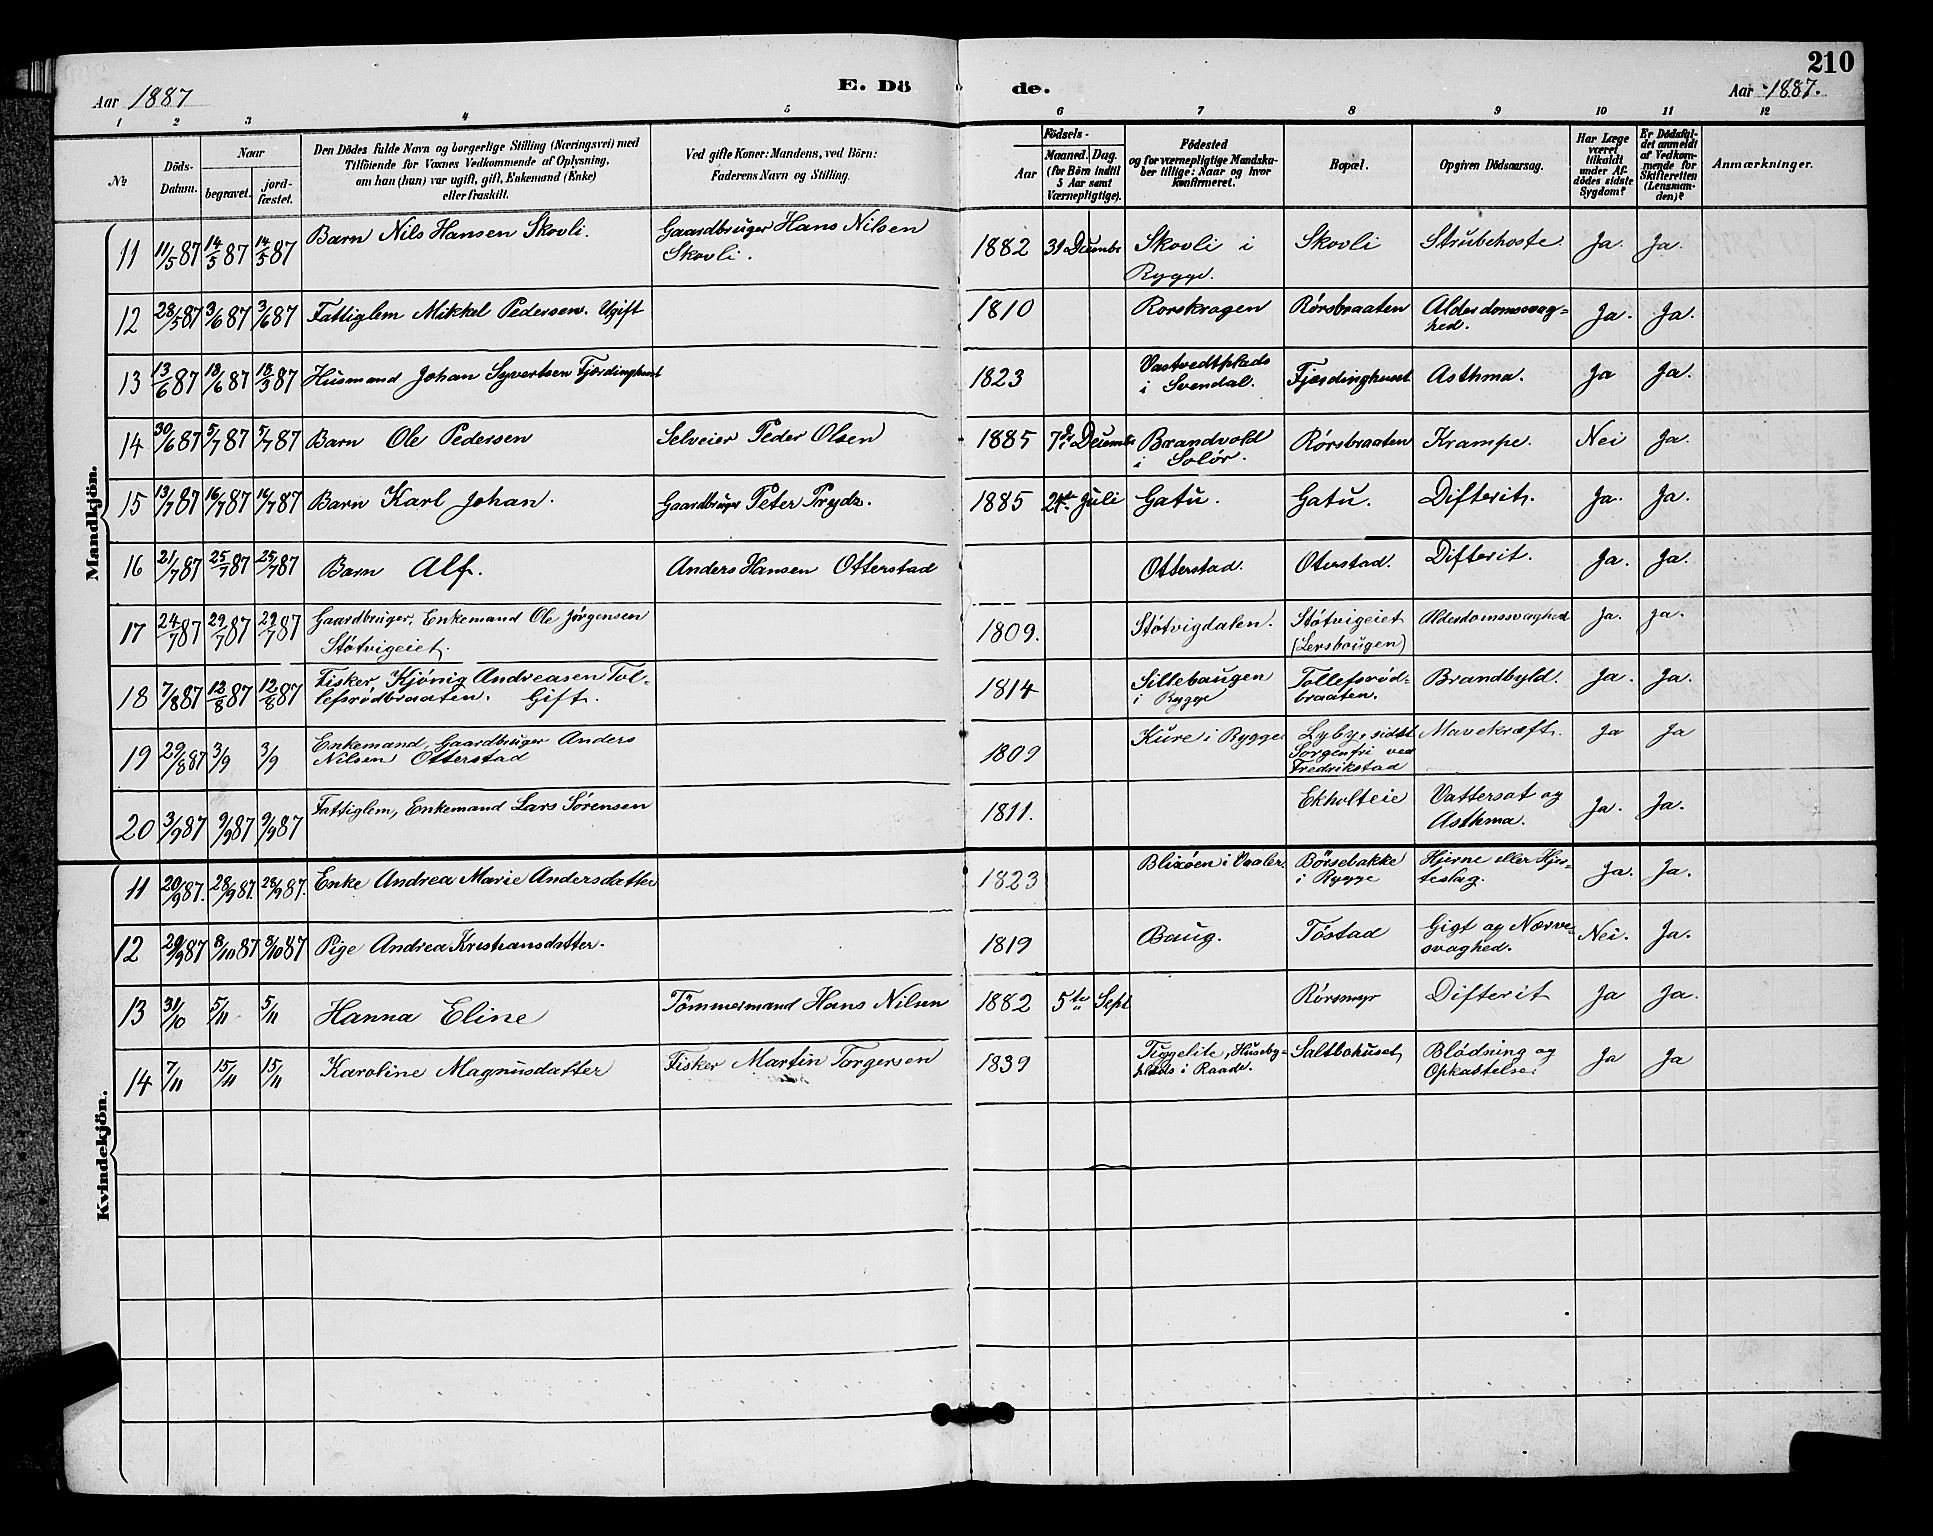 210
Aar 1887
E. Dö de.
Aar 1887.
1 2 3 4 5 6 7 8 9 10 11 12
№
Döds-Datum.
Naar
begravet. jord-fæstet.
Den Dödes fulde Navn og borgerlige Stilling (Næringsvei) med
Tilföiende for Voxnes Vedkommende af Oplysning,
om han (hun) var ugift, gift, Enkemand (Enke)
eller fraskilt.
Ved gifte Koner: Mandens, ved Börn:
Faderens Navn og Stilling.
Födsels-
Aar
Maaned. Dag.
(for Börn indtil
5 Aar samt
Værnepligtige).
Födested
og for værnepligtige Mandska-
ber tillige: Naar og hvor
konfirmeret.
Bopæl.
Opgiven Dödsaarsag.
Har Læge
været
tilkaldt
under Af-
dödes sidste
Sygdom?
Er Dödsfal-
det anmeldt
af Vedkom-
mende for
Skifteretten
(Lensman-
den)?
Anmærkninger.
Mandkjön.
11 11/5 87 14/5 87 14/5 87 Barn Nils Hansen Skovli. Gaardbruger Hans Nilsen 1882 31 Decembr Skovli i Skovli Strubehoste. Ja. Ja.
Skovli. Rygge.
12 28/5 87 3/6 87 3/6 87 Fattiglem Mikkel Pedersen. Ugift 1810 Rorskragen Rørsbraaten Alderdomssvag=
hed. Ja. Ja.
13 13/6 87 18/6 87 18/3 87 Husmand Johan Syvertsen Fjærdinghuset 1823 Vastvedtplads Fjærdinghuset Asthma. Ja Ja.
i Svendal.
14 30/6 87 5/7 87 5/7 87 Barn Ole Pedersen Selveier Peder Olsen 1885 7de Decembr Brandvold Rørsbraaten Krampe. Nei Ja.
i Solør.
15 13/7 87 16/7 87 16/7 87 Barn Karl Johan. Gaardbruger Peter Prydz. 1885 24de Juli Gatu. Gatu. Difterit. Ja. Ja.
16 21/7 87 25/7 87 25/7 87 Barn Alf. Anders Hansen Otterstad Otterstad. Oterstad. Difterit. Ja. Ja.
17 24/7 87 29/7 87 29/7 87 Gaardbruger, Enkemand Ole Jørgensen 1809. Støtvigdalen. Støtvigeiet Alderdomssvaghed Ja. Ja.
Støtvigeiet. (Lersbaugen)
18 7/8 87 12/8 87 12/8 87 Fisker Kjønig Andreasen Tol- 1814 Sillebaugen Tollefsrød- Brandbyld. Ja. Ja.
lefsrødbraaten. Gift. i Rygge braaten.
19 29/8 87 3/9 3/9 Enkemand, Gaardbruger Anders 1809 Kure i Rygge Lyby, sidst Mavekræft. Ja Ja
Nilsen Otterstad Sorgenfri ved
Fredrikstad
20 3/9 87 9/9 87 9/9 87 Fattiglem, Enkemand Lars Sørensen 1811. Ekholteie Vattersot og Ja. Ja.
Asthma.
Kvindekjön.
11 20/9 87. 28/9 87. 28/9 87. Enke Andrea Marie Andersdatter 1823 Blixöen i Vaaler. Börsebakke Hjerne eller Hjer- Ja. Ja.
i Rygge teslag.
12 29/9 87 8/10 87 8/10 87 Pige Andrea Kristiansdatter. 1819 Baug. Töstad Gigt og Nærve- Nei. Ja.
svaghed.
13 31/10 5/11 5/11 Hanna Eline Tömmermand Hans Nilsen 1882 5te Sept Rørsmyr Difterit Ja Ja.
14 7/11 15/11 15/11 Karoline Magnusdatter Fisker Martin Torgersen 1839 Tiggelite, Huseby- Saltbohuset Blödning og Ja Ja
plads i Raade. Opkastelse.